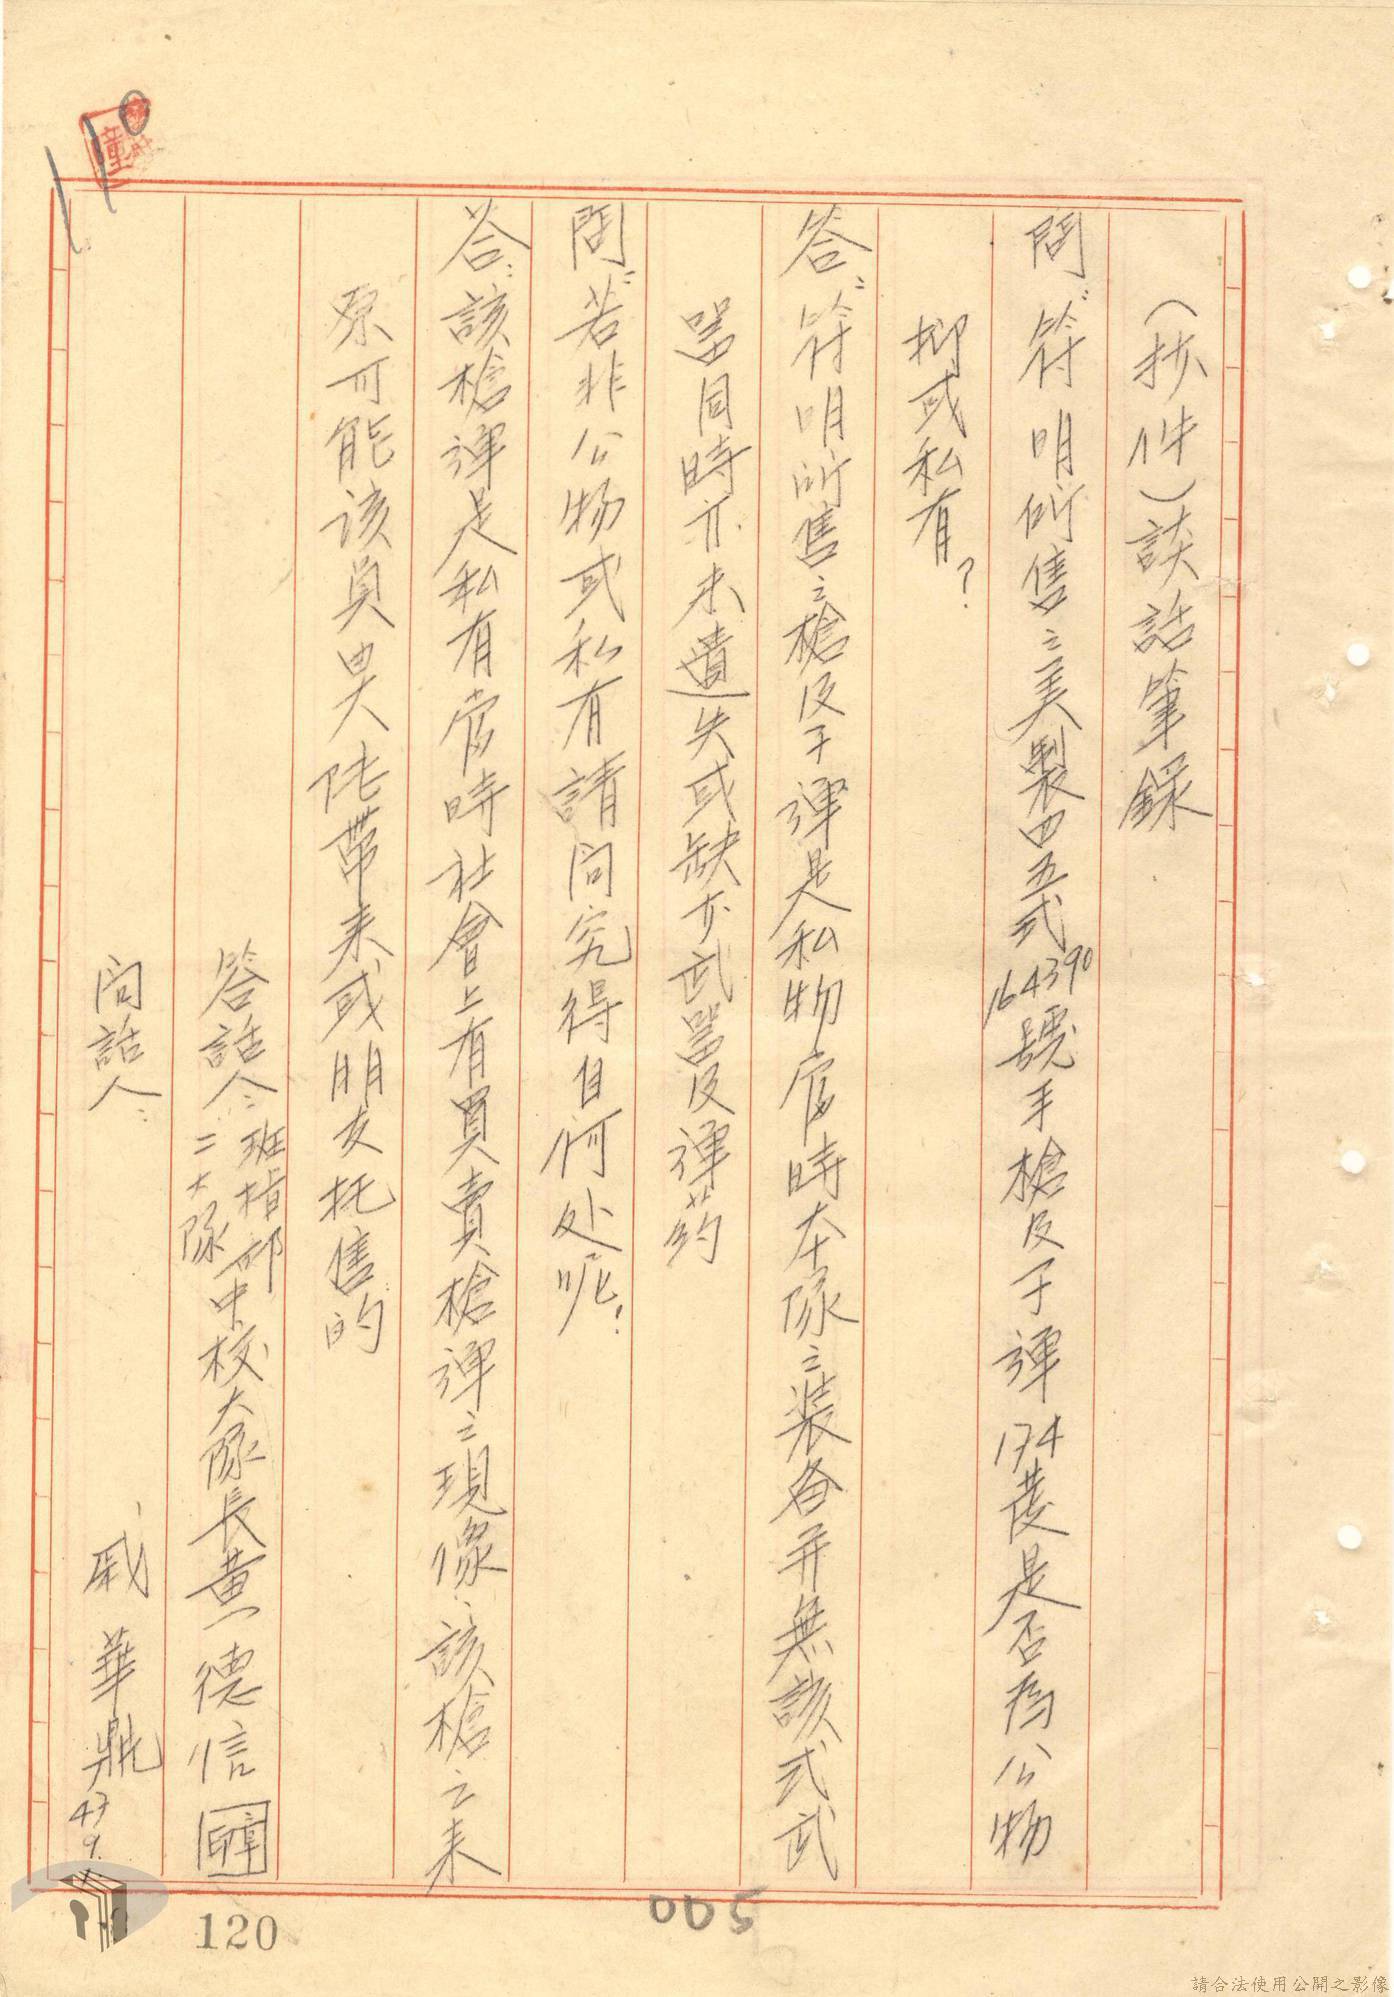 (抄件)談話筆錄
問:符明所售之美製四五式164390號手槍及子彈174發是否為公物
抑或私有?
答:符明所售之槍及子彈是私物當時本隊之裝备并無該式武
器同時亦未遺失或缺亦武器及彈药
問:若非公物或私有請问究得自何处呢!
答:該槍彈是私有當時社會上有買賣槍彈之現像,該槍之来
原可能該員由大陆带来或朋友托售的
答話人:班指部二大隊中校大隊長黄德信 印章
问話人: 戚華鼎 47 9.
110
120
005
請合法使用公開之影像